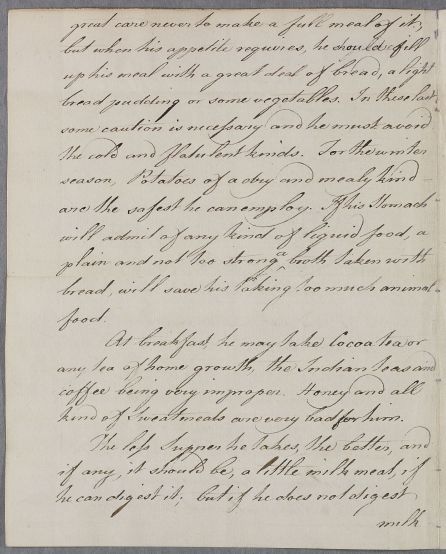 great care never to make a full meal of it;
but when his appetite requires, he should fill
up his meal with a great deal of bread, a light
bread pudding or some vegetables. In these last
some caution is necessary and he must avoid
the cold and flatulent kinds. For the winter
season, Potatoes of a dry and mealy kind
are the safest he can employ. If his Stomach
will admit of any kind of liquid food, a
plain and not too strong a broth taken with
bread, will save his taking too much animal
food.
At breakfast he may take Cocoa tea or
any tea of home growth, the Indian teas and
coffee being very improper. Honey and all
kind of Sweatmeats are very bad for him.
The less Supper he takes, the better, and
if any, it should be, a little milk meat, if
he can digest it; but if he does not digest
milk